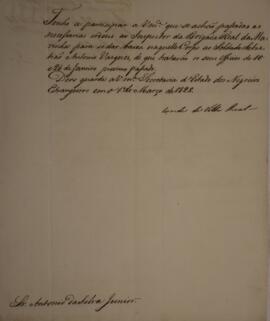 Tenho a participar a Vm.ce que se achão passadas as
necessarias ordens ao Inspector da Brigada Real da Ma-
rinha para se dar baixa naquelle Corpo ao Soldado
Antonio Vasques, de que tratava o seu officio de
de Janeiro proximo passado.
Deos guarde a Vm.ce Secretaria d'Estado dos Negocios
Estrangeiros em o 1.º de Março de 1822.
Conde de Villa Real
Sr. Antonio da Silva Junior.